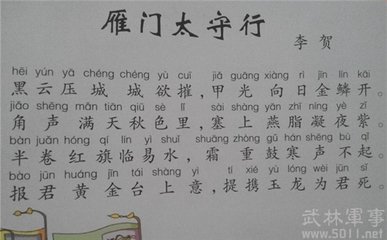 雁门太守行
李贺
hēi yún yā chéng chéng yù cuī jiǎ guāng xiàng rì jīn lín kāi
黑云压城城欲摧,甲光向日金鳞开。
jiǎo shēng mǎn tiān qiū sè lǐ sài shàng yān zhī níng yè zǐ
角声满天秋色里,塞上燕脂凝夜紫。
bàn juǎn hóng qí lín yì shuǐ shuāng zhòng gǔ hán shēng bù qǐ
半卷红旗临易水,霜重鼓寒声不起。
bào jūn huáng jīn tái shàng yì tí xié yù lóng wèi jūn sǐ
报君黄金台上意,提携玉龙为君死。
武林軍事
www.5011.net